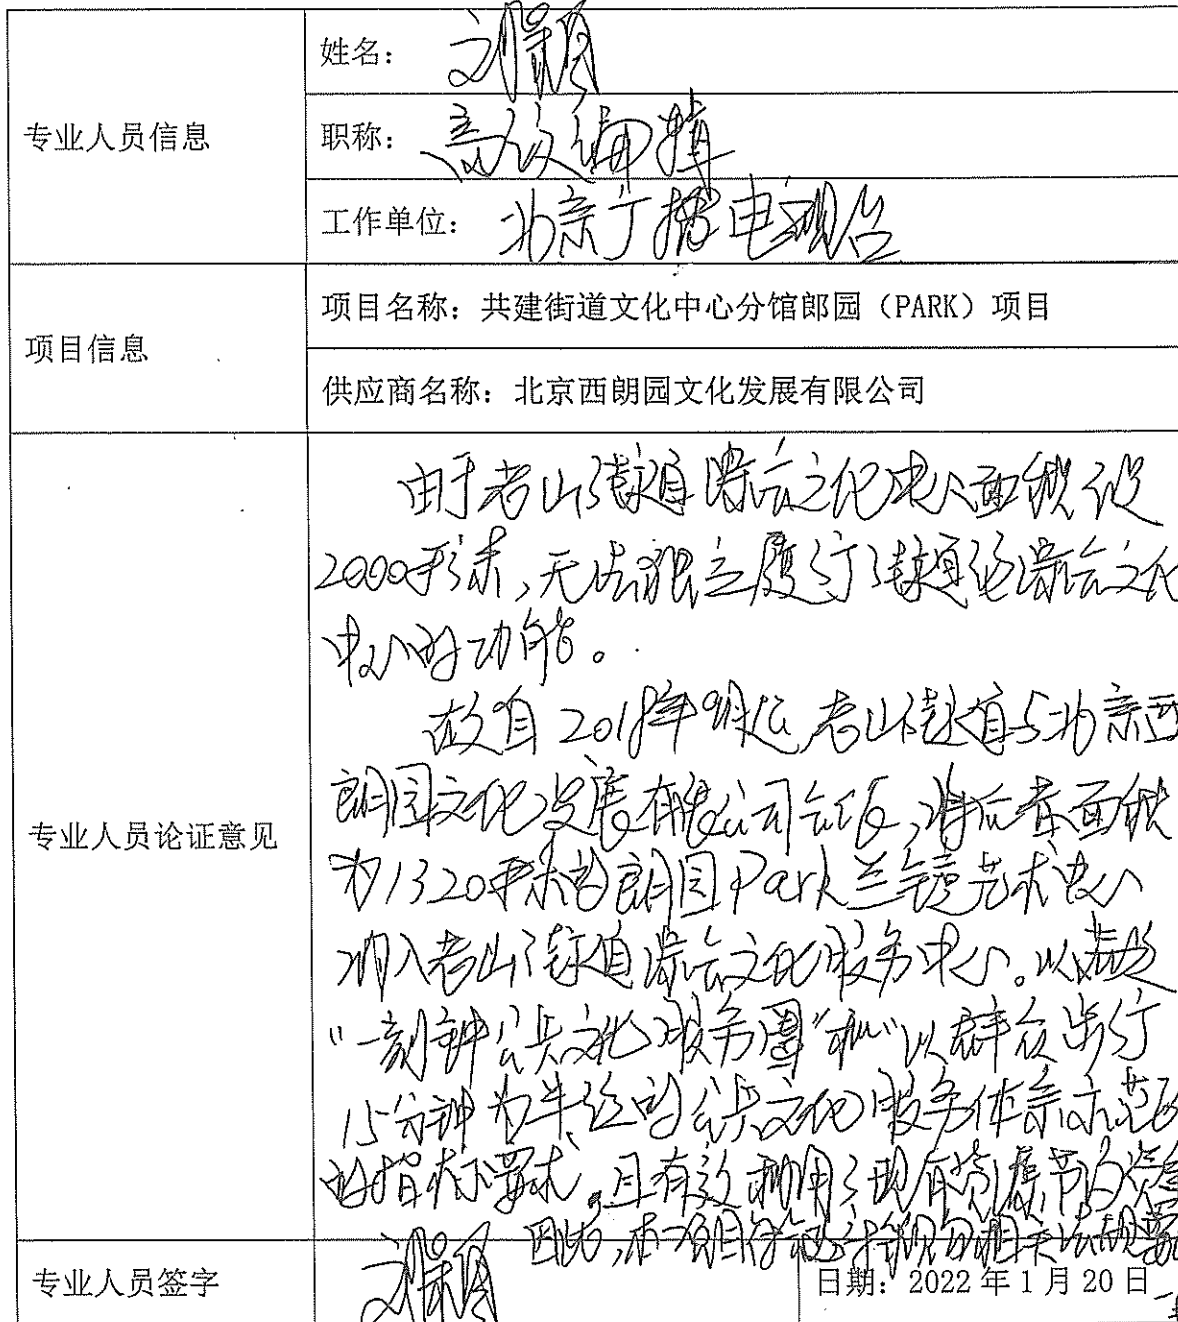 专业人员信息
姓名：
职称：高级编辑
工作单位：北京广播电视台
项目信息
项目名称：共建街道文化中心分馆郎园（PARK）项目
供应商名称：北京西朗园文化发展有限公司
专业人员论证意见
由于老山街道综合文化中心面积仅
2000平米，无法独立履行街道级综合文化
中心的功能。
故自2018年9月起，老山街道与北京西
朗园文化发展有限公司合作，将后者面积
为1320平米的朗园Park兰境艺术中心
纳入老山街道综合文化服务中心。以满足
“一刻钟公共文化服务圈”和“以群众步行
15分钟为半径的公共文化服务体系示范区
的指标要求，且有效利用了现有资源节约资金
因此，本项目符合 相关法规要
专业人员签字
日期：2022年1月20日